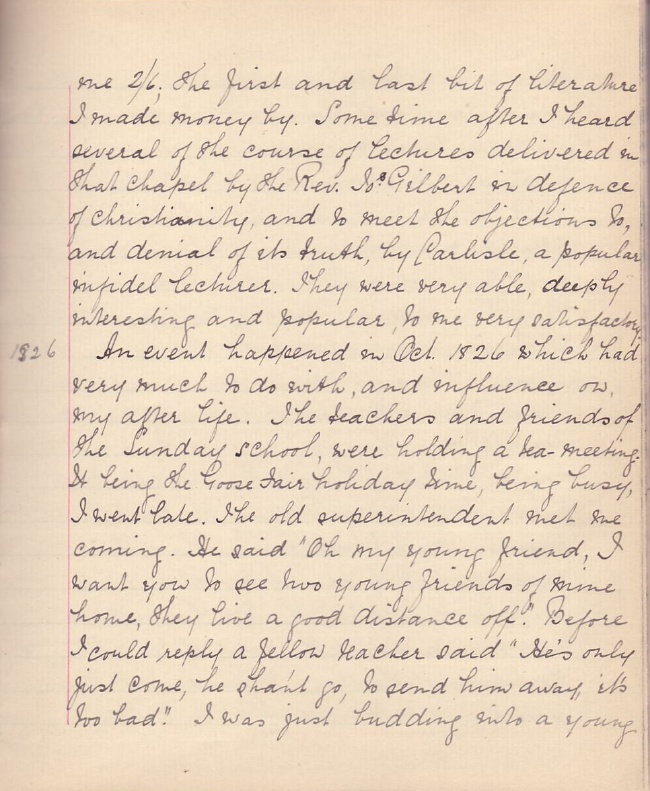 me 2/6; the first and last bit of literature
I made money by. Some time after I heard
several of the course of lectures delivered in
that chapel by the Rev. Jos: Gilbert in defence
of christianity, and to meet the objections to,
and denial of its truth, by Carlisle, a popular
infidel lecturer. They were very able, deeply
interesting and popular, to me very satisfactory
1826 An event happened in Oct. 1826 which had
very much to do with, and influence on,
my after life. The teachers and friends of
the Sunday school, were holding a tea-meeting.
It being the Goose Fair holiday time, being busy,
I went late. The old superintendent met me
coming. He said "Oh my young friend, I
want you to see two young friends of mine
home, they live a good distance off". Before
I could reply a fellow teacher said "He's only
just come, he shan't go, to send him away, it's
too bad". I was just budding into a young